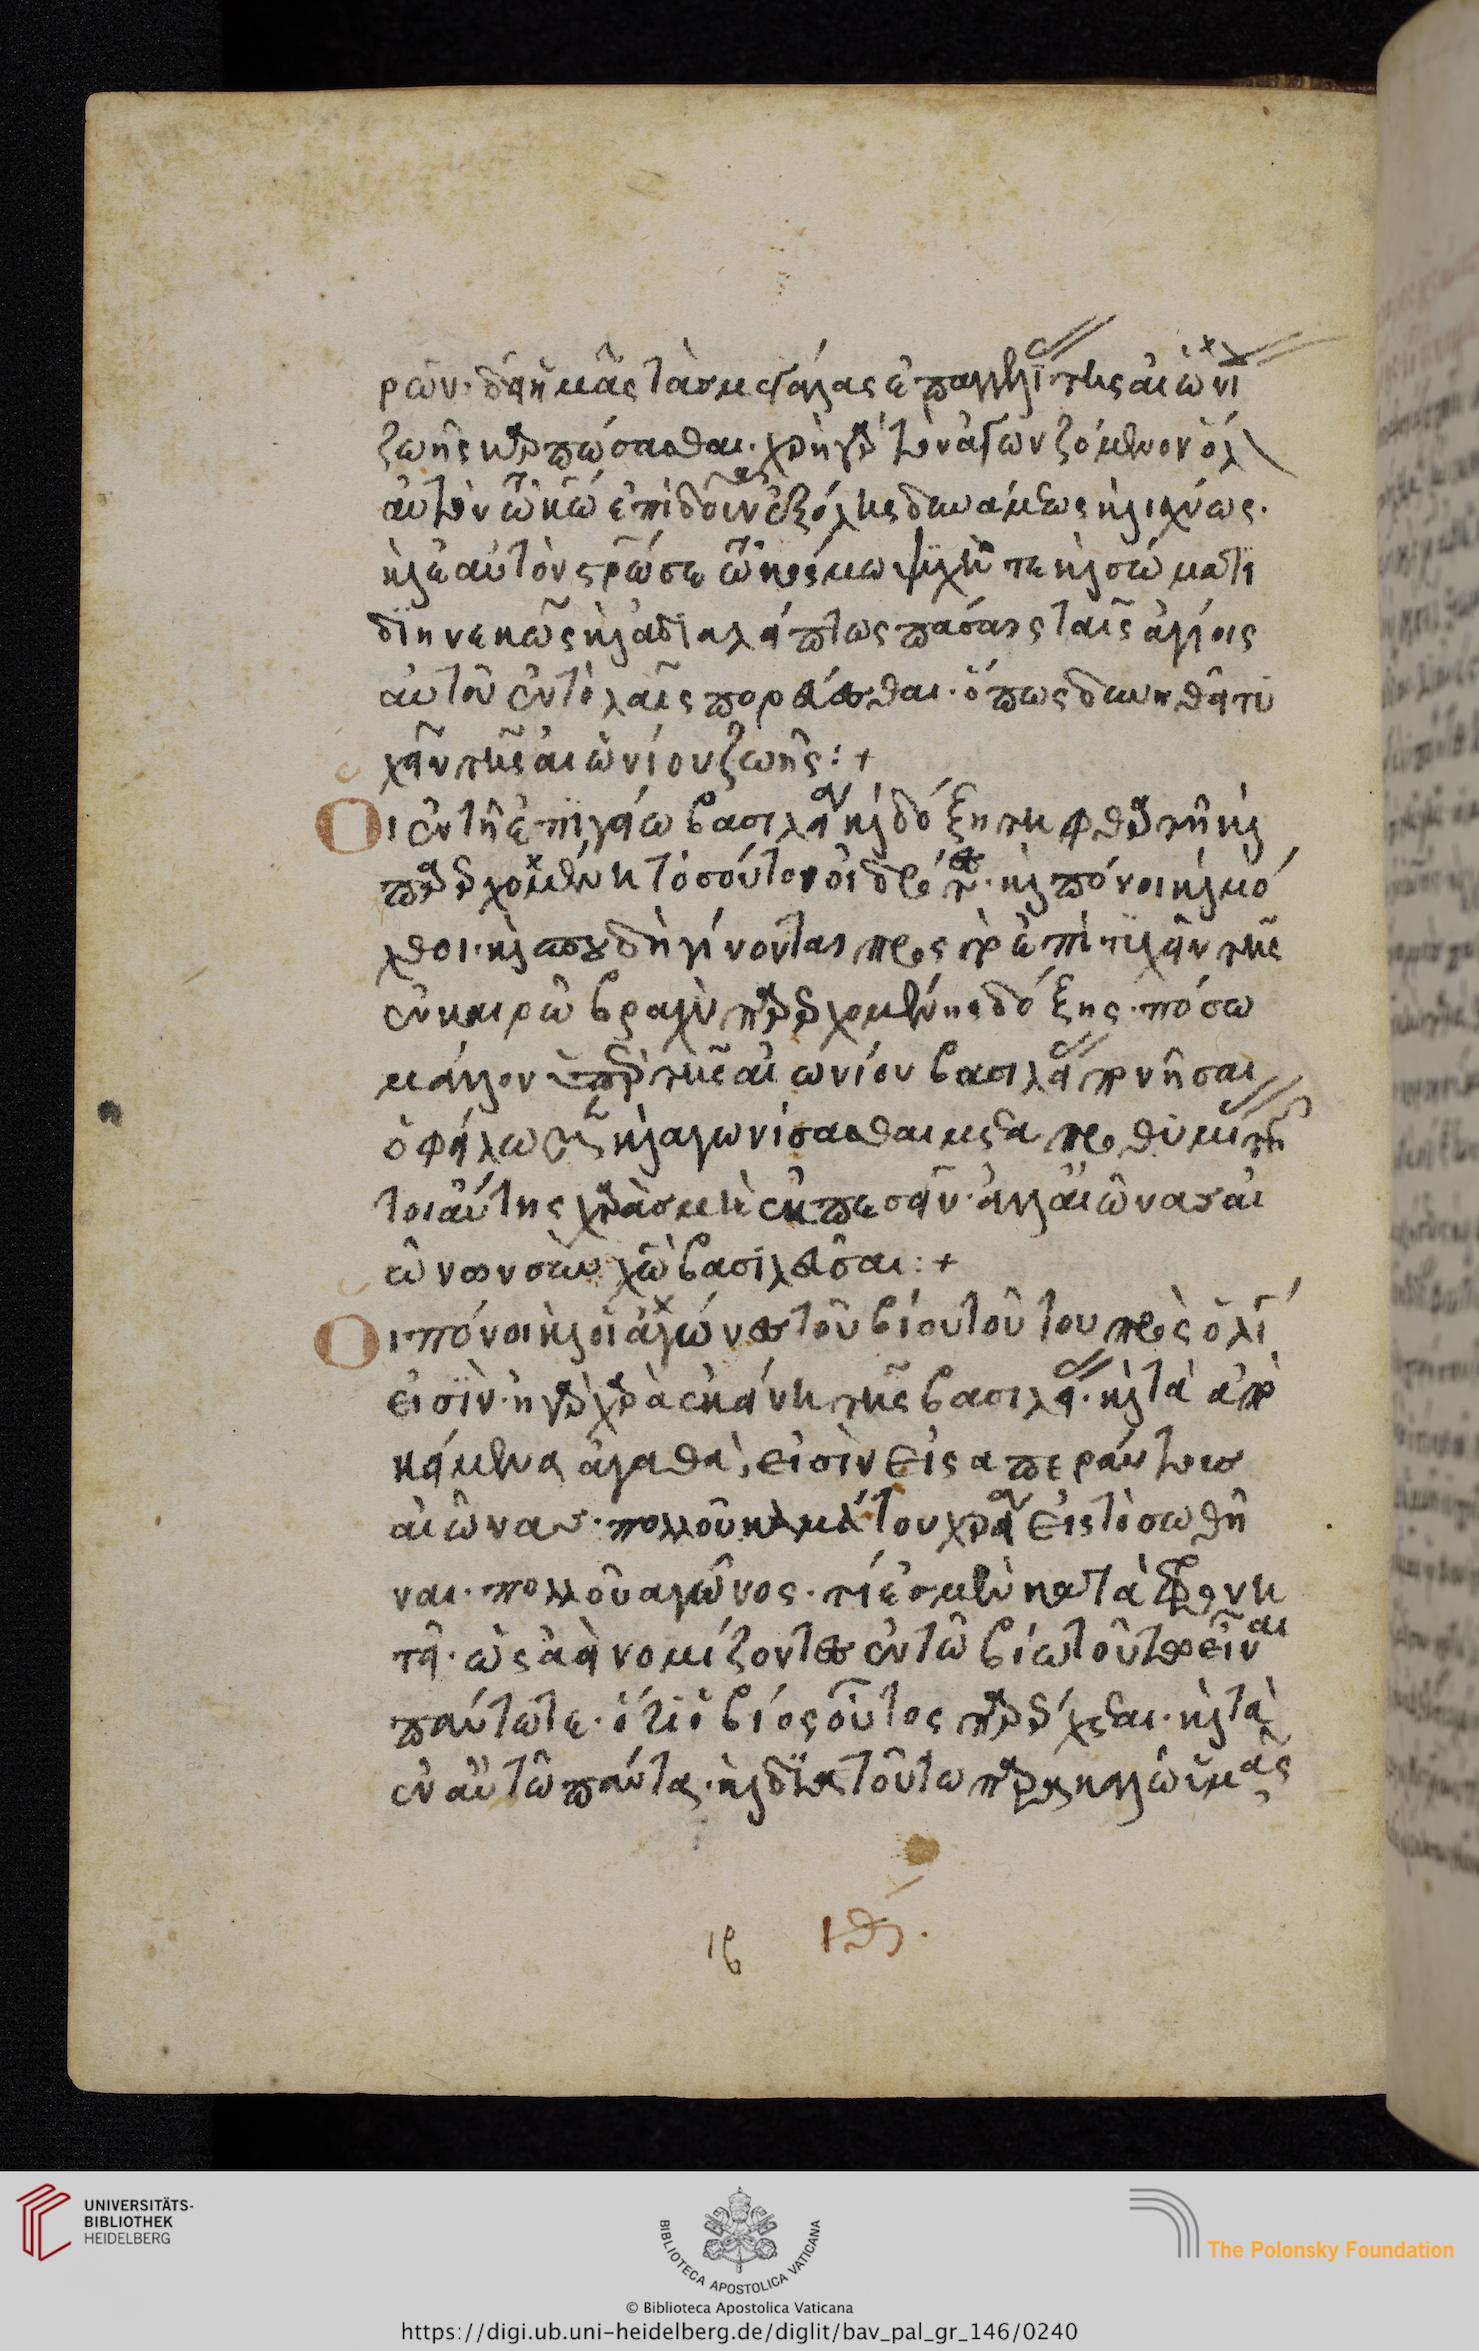 ρῶν· δεῖ ἡμᾶς τὰς μεγάλας ἐπαγγελίας τῆς αἰωνίου
ζωῆς καρπώσασθαι· χρὴ γὰρ τὸν ἀγωνιζόμενον ὅλον
αὐτὸν τῷ κῶ ἐπιδοῦναι ἐξ ὅλης δυνάμεως καὶ ἰσχύος·
καὶ ἑαυτὸν τῷ κῶ ψυχῆ τε καὶ σώματι
διηνεκῶς καὶ ἀδιαλείπτως πάσαις ταῖς ἁγίαις
αὐτοῦ ἐντολαῖς πορεύεσθαι· ὅπως δυνηθῆ τυ
χεῖν τῆς αἰωνίου ζωῆς: +
Οι ἐν τῆ ἐπιγείω βασιλεία καὶ δόξη τῆ φθαρτῆ καὶ
παρερχομένη τοσοῦτοι οἱ ἱδρῶτες· καὶ πόνοι καὶ μό
χθοι· καὶ σπουδὴ γίνονται πρὸς τὸ ἐπιτυχεῖν τῆς
ἐν καιρῶ βραχεῖ παρερχομένης δόξης· πόσω
μᾶλλον ὑπὲρ τῆς αἰωνίου βασιλείας πονῆσαι
ὀφείλομεν καὶ ἀγωνίσασθαι μετὰ προθυμίας τῆς
τοιαύτης χαρᾶς μὴ ἐκπεσεῖν· ἀλλ' αἰῶνας αἰ
ώνων σὺν χῶ βασιλεῦσαι: +
Οι πόνοι καὶ οἱ ἀγῶνες τοῦ βίου τούτου πρὸς ὀλίγον
εἰσὶν· ἡ γὰρ χαρὰ ἐκείνη τῆς βασιλείας· καὶ τὰ ἀπο
κείμενα ἀγαθὰ, εἰσὶν εἰς ἀπεράντους
αἰῶνας· πολλοῦ καμάτου χρεία εἰς τὸ σωθῆ
ναι· πολλοῦ ἀγῶνος· τί ἐσμὲν κατὰφρονη
ταί· ὡς ἀεὶ νομίζοντες ἐν τῶ βίω τούτω εἶναι
πάντοτε· ὅτι ὁ βίος οὗτος παρέρχεται· καὶ τὰ
ἐν αὐτῶ πάντα· καὶ διὰ τοῦτο παρακαλῶ ὑμᾶς
ιβ ιθ·
UNIVERSITÄTS-
BIBLIOTHEK
HEIDELBERG
BIBLIOTECA APOSTOLICA VATICANA
The Polonsky Foundation
© Biblioteca Apostolica Vaticana
https://digi.ub.uni-heidelberg.de/diglit/bav_pal_gr_146/0240